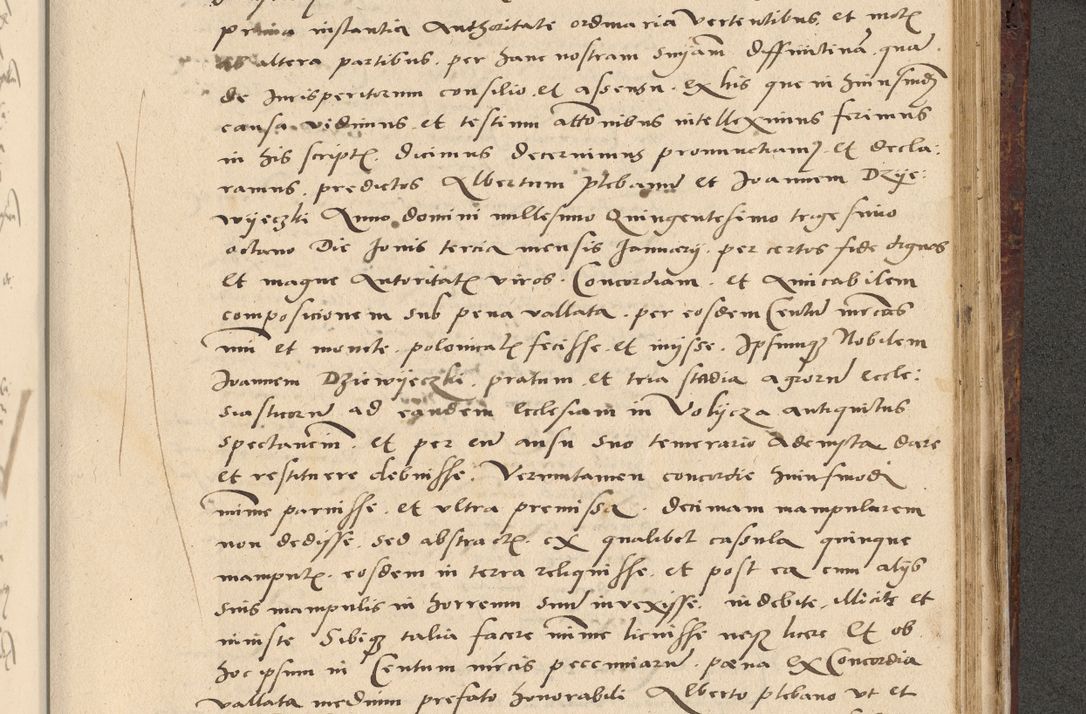 prima instantia Authoritate ordinaria vertentibus et motis
ex altera partibus. per hanc nostram sniam diffinitivam. quam
de Jurisperitorum consilio et assensu. ex his que in huiusmodi
causa vidimus et testium attonibus intelleximus ferimus
in his scriptis. dicimus decernimus pronunctiamus et decla:
ramus. predictos Albertum plebanum et Joannem Dzije:
wijeczki Anno domini millesimo Quingentesimo trigesimo
octavo Die Jovis tercia mensis Januarij. per certos fide dignos
et magne Autoritatis viros. Concordiam. et Amicabilem
composicionem sub pena vallata. per eosdem Centum mrcas
nui et monete. polonicalis fecisse et inijsse. Ipsumque Nobilem
Joannem Dziewijeczki. pratum et tria stadia agrorum eccle:
siasticorum ad eandem Ecclesiam in Volijcza antiquitus
spectancium. et per eum ausu suo temerario Adempta dare
et restituere debuisse. Verumtamen concordie huiusmodi
minime paruisse. et ultra premissa. decimam manipularem
non dedisse. sed abstractis. ex qualibet casula quinque
mampulis. eosdem in terra reliquisse. et post ea cum alijs
suis manipulis in horreum suum invexisse. indebite illicite et
iniuste Sibique talia facere minime licuisse neque licere Et ob
hoc ipsum in Centum mrcis pecuniarum. pœna ex Concordia
vallata medium prefato honorabili Alberto plebano ut et